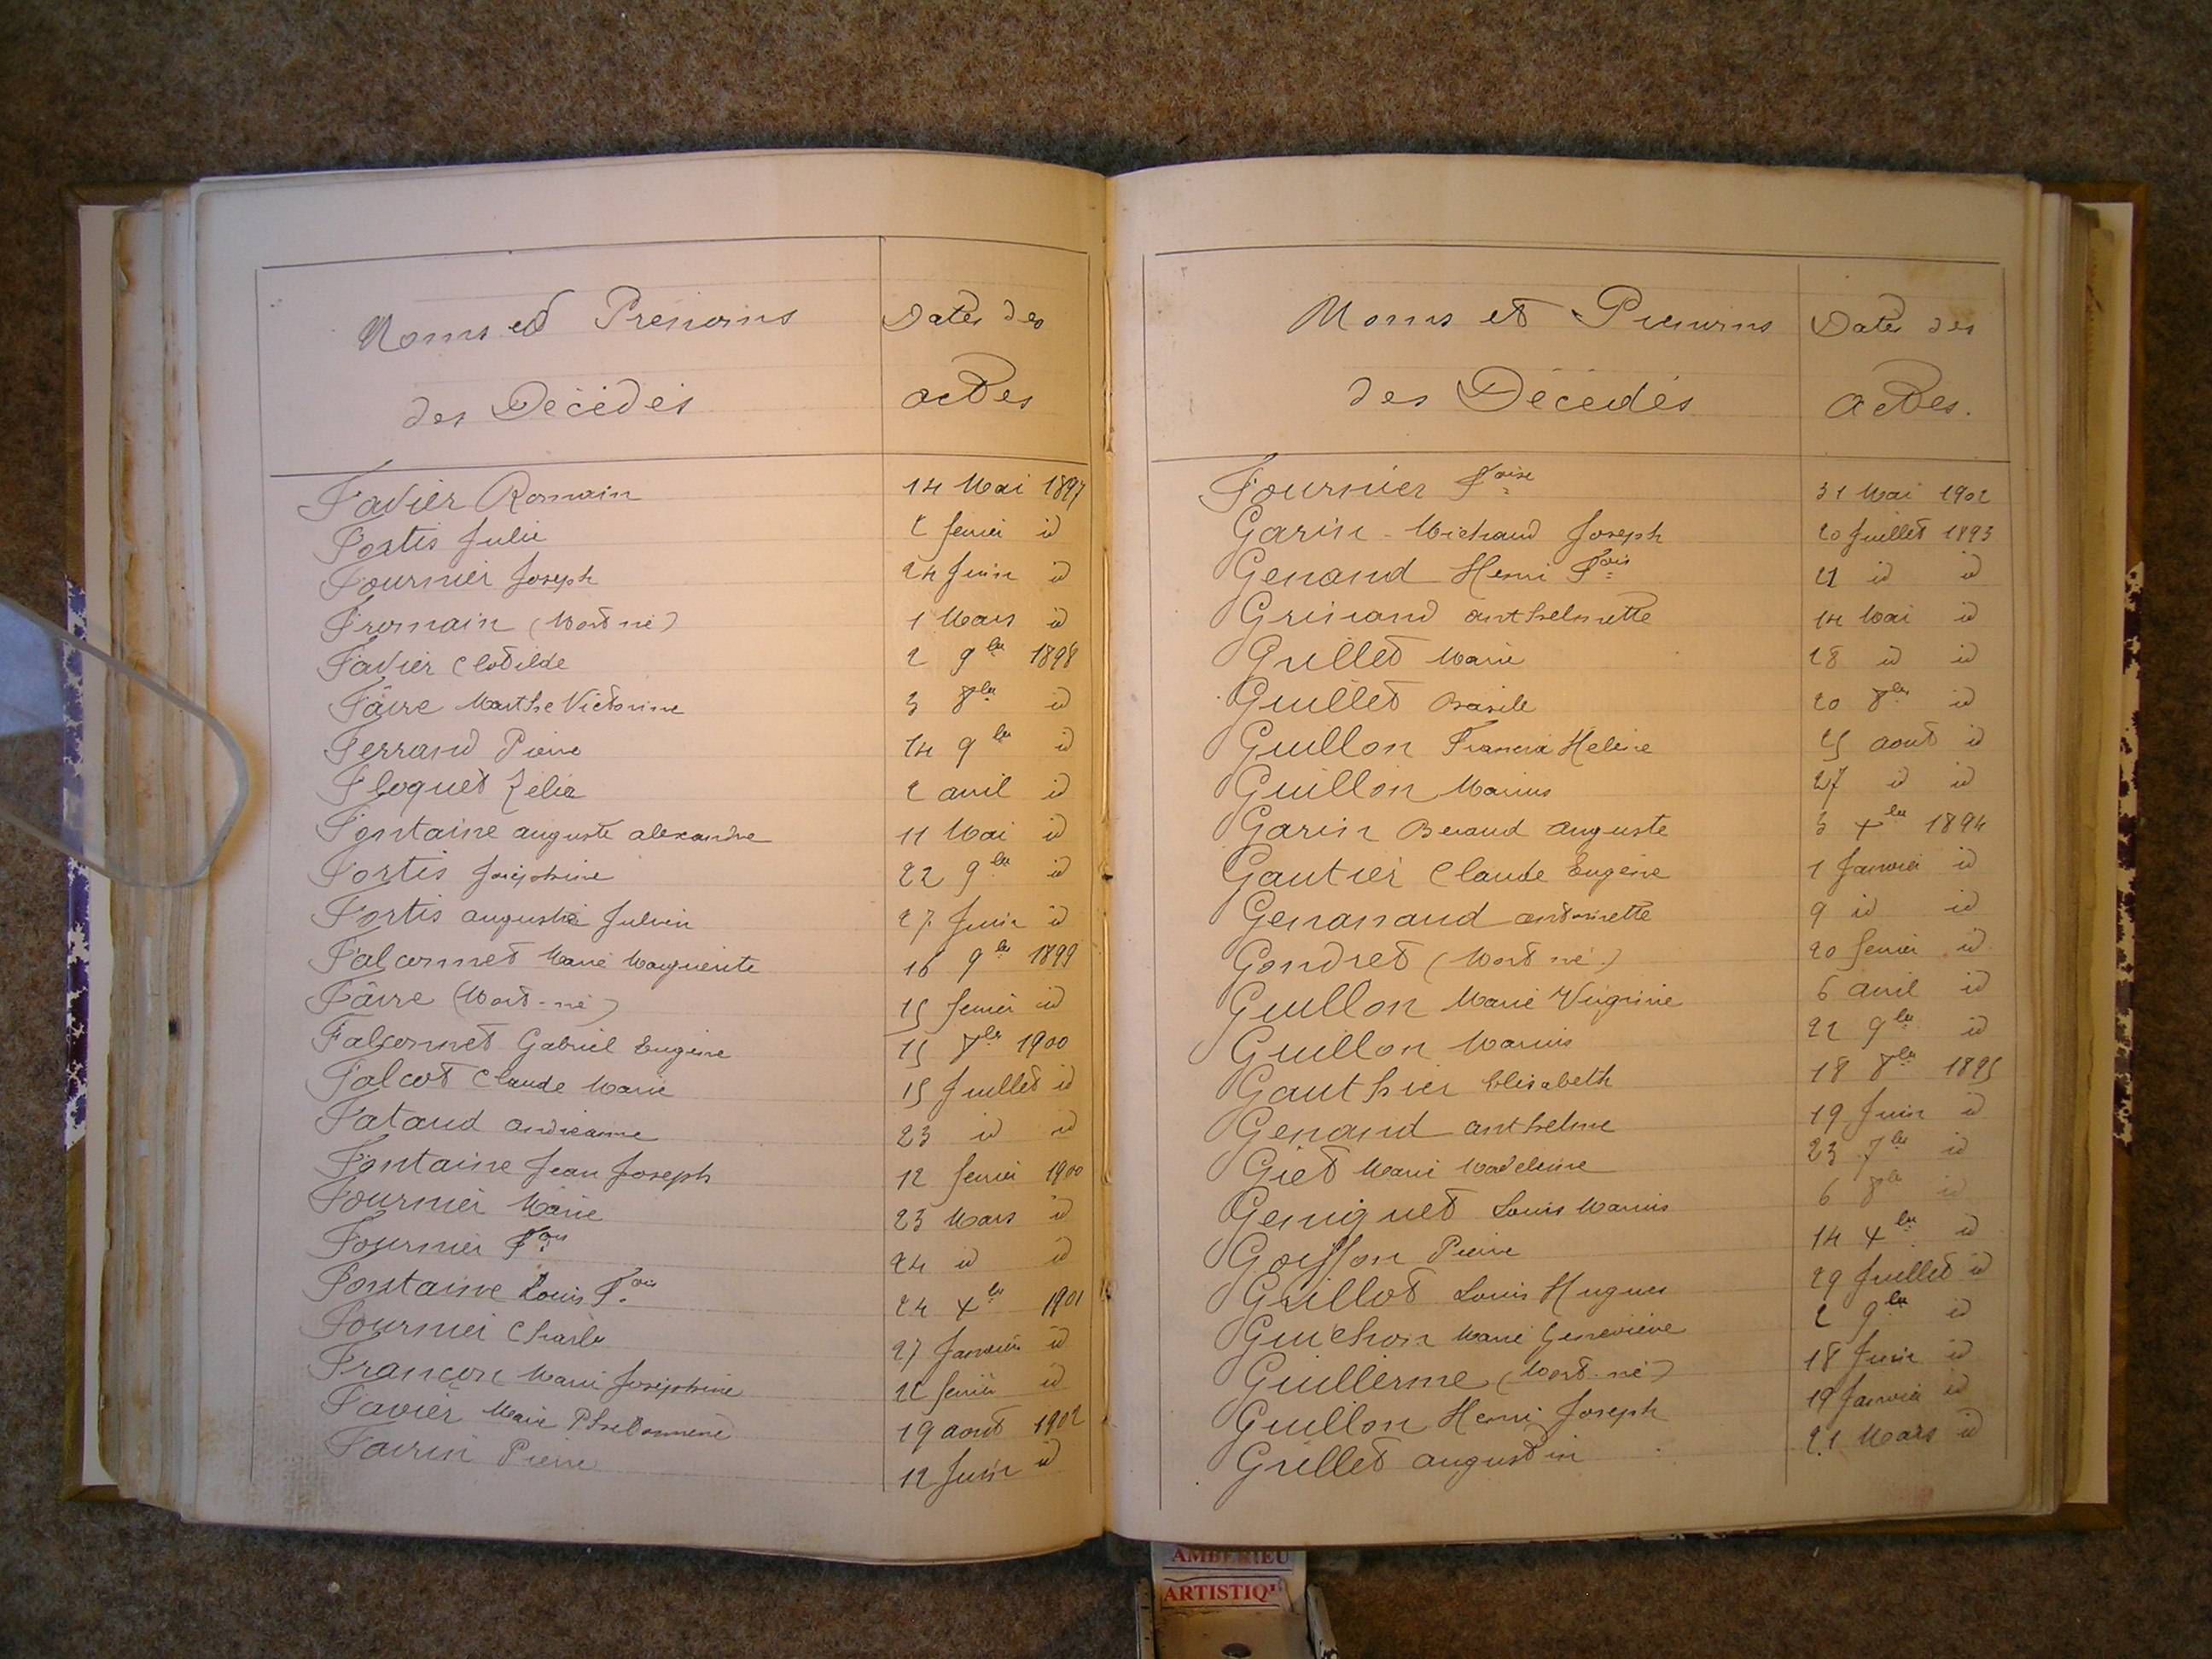 Noms et Prénoms Dates des
des Décédés actes
Favier Romain 14 Mai 1897
Fortis Julie 2 fevrier id
Fournier Joseph 24 Juin id
Fromain (Mort né) 1 Mars id
Favier Clotilde 2 9bre 1898
Fâvre Marthe Victorine 3 8bre id
Ferrand Pierre 14 9bre id
Floquet Zélia 2 avril id
Fontaine auguste alexandre 11 Mai id
Fortis Joséphine 22 9bre id
Fortis augustin Julien 27 Juin id
Falconnet Marie Marguerite 16 9bre 1899
Fâvre (Mort-né) 15 fevrier id
Falconnet Gabriel Eugène 15 8bre 1900
Falcot Claude Marie 15 Juillet id
Fataud andréanne 23 id id
Fontaine Jean Joseph 12 fevrier 1900
Fournier Marie 23 Mars id
Fournier Fois 24 id id
Fontaine Louis Fois 24 Xbre 1901
Fournier Charles 27 Janvier id
Françon Marie Joséphine 22 fevrier id
Favier Marie Philomène 19 aout 1902
Favrin Pierre 12 Juin id
Noms et Prénoms Dates des
des Décédés actes.
Fournier Foise 31 Mai 1902
Garin-Michaud Joseph 20 Juillet 1893
Genand Henri Fois 21 id id
Grinand anthelmette 14 Mai id
Grillet Marie 28 id id
Guillet Basile 20 8bre id
Guillon Francia Helène 25 aout id
Guillon Marius 27 id id
Garin Beraud auguste 3 Xbre 1894
Gautier Claude Eugène 1 Janvier id
Genanaud antoinette 9 id id
Gondret (Mort né) 20 fevrier id
Guillon Marie Virginie 6 avril id
Guillon Marius 22 9bre id
Gauthier Elisabeth 18 8bre 1895
Genand anthelme 19 Juin id
Giet Marie Madeleine 23 7bre id
Geniquet Louis Marius 6 8bre id
Goiffon Pierre 14 Xbre id
Grillot Louis Hugues 29 Juillet id
Guichon Marie Geneviève 2 9bre id
Guillerme (Mort-né) 18 Juin id
Guillon Henri Joseph 19 Janvier id
Grillet augustin 21 Mars id
AMBERIEU
ARTISTIQ